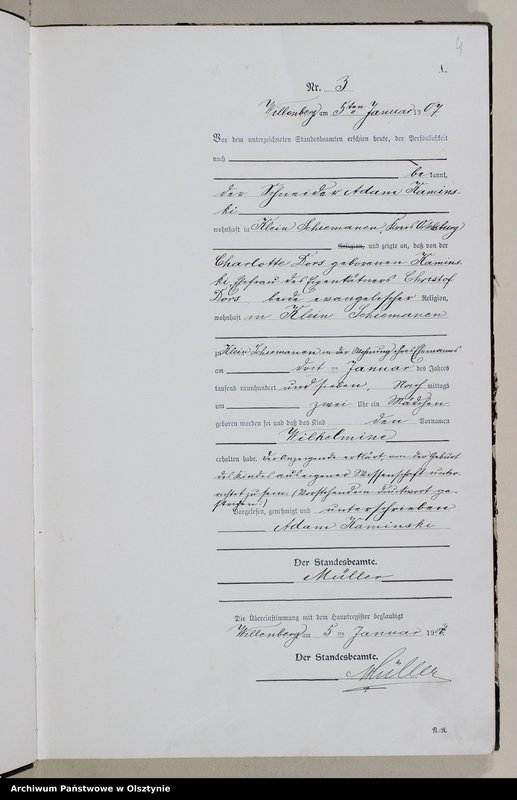 4
A.
Nr. 3
Willenberg am 5ten Januar 1907.
Vor dem unterzeichneten Standesbeamten erschien heute, der Persönlichkeit
nach
be kannt,
der Schneider Adam Kamins-
ki
wohnhaft in Klein Schiemanen, Kreis Ortelsburg
Religion, und zeigte an, daß von der
Charlotte Dors geborenen Kamins-
ki, Ehefrau des Eigenkätners Christof
Dors beide evangelischer Religion,
wohnhaft in Klein Schiemanen
zu Klein Schiemanen in der Wohnung ihres Ehemanns
am drei ten Januar des Jahres
tausend neunhundert und sieben, Nach mittags
um zwei Uhr ein Mädchen
geboren worden sei und daß das Kind den Vornamen
Wilhelmine
erhalten habe. Der Anzeigende erklärt, von der Geburt
des Kindes aus eigener Wissenschaft unter-
richtet zu sein. (Vorstehend ein Druckwort ge-
strichen.)
Vorgelesen, genehmigt und unterschrieben
Adam Kaminski
Der Standesbeamte.
Müller
Die Übereinstimmung mit dem Hauptregister beglaubigt
Willenberg am 5 ten Januar 1907.
Der Standesbeamte.
Müller
N.-R.
Archiwum Państwowe w Olsztynie